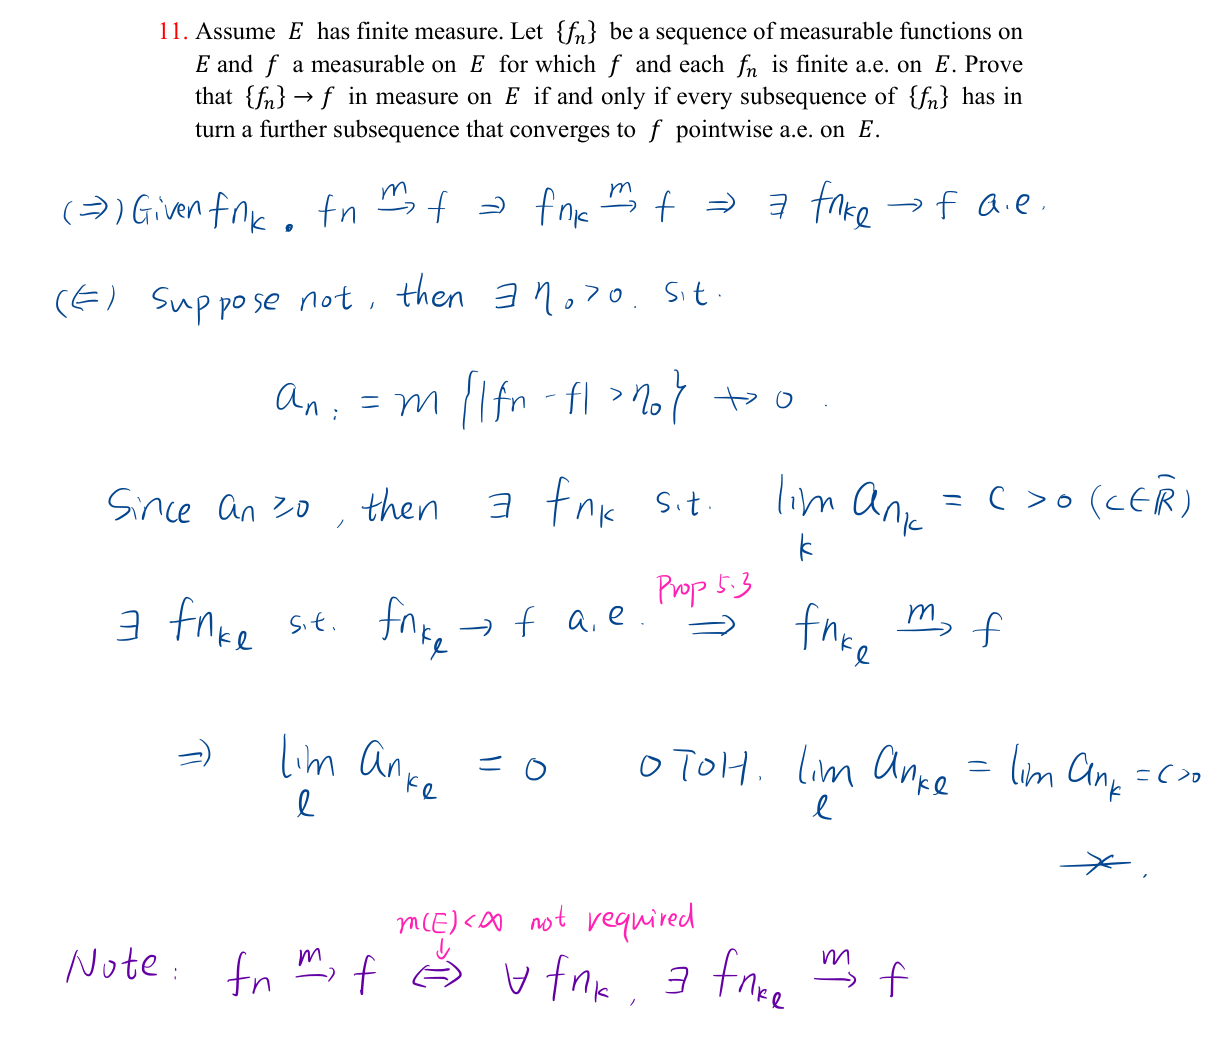 11. Assume E has finite measure. Let {fₙ} be a sequence of measurable functions on
E and f a measurable on E for which f and each fₙ is finite a.e. on E. Prove
that {fₙ} → f in measure on E if and only if every subsequence of {fₙ} has in
turn a further subsequence that converges to f pointwise a.e. on E.
(⇒) Given f_{n_k}. fn →^m f ⇒ f_{n_k} →^m f ⇒ ∃ f_{n_{k_ℓ}} → f a.e.
(⇐) Suppose not, then ∃ η₀ > 0. s.t.
aₙ := m {|fn - f| > η₀} ↛ 0.
Since an ≥ 0, then ∃ f_{n_k} s.t. lim_k a_{n_k} = c > 0 (c ∈ R̂)
Prop 5.3
∃ f_{n_{k_ℓ}} s.t. f_{n_{k_ℓ}} → f a.e. ⇒ f_{n_{k_ℓ}} →^m f
⇒ lim_ℓ a_{n_{k_ℓ}} = 0 OTOH. lim_ℓ a_{n_{k_ℓ}} = lim a_{n_k} = c > 0
m(E) < ∞ not required
↓
Note: fn →^m f ⇔ ∀ f_{n_k}, ∃ f_{n_{k_ℓ}} →^m f